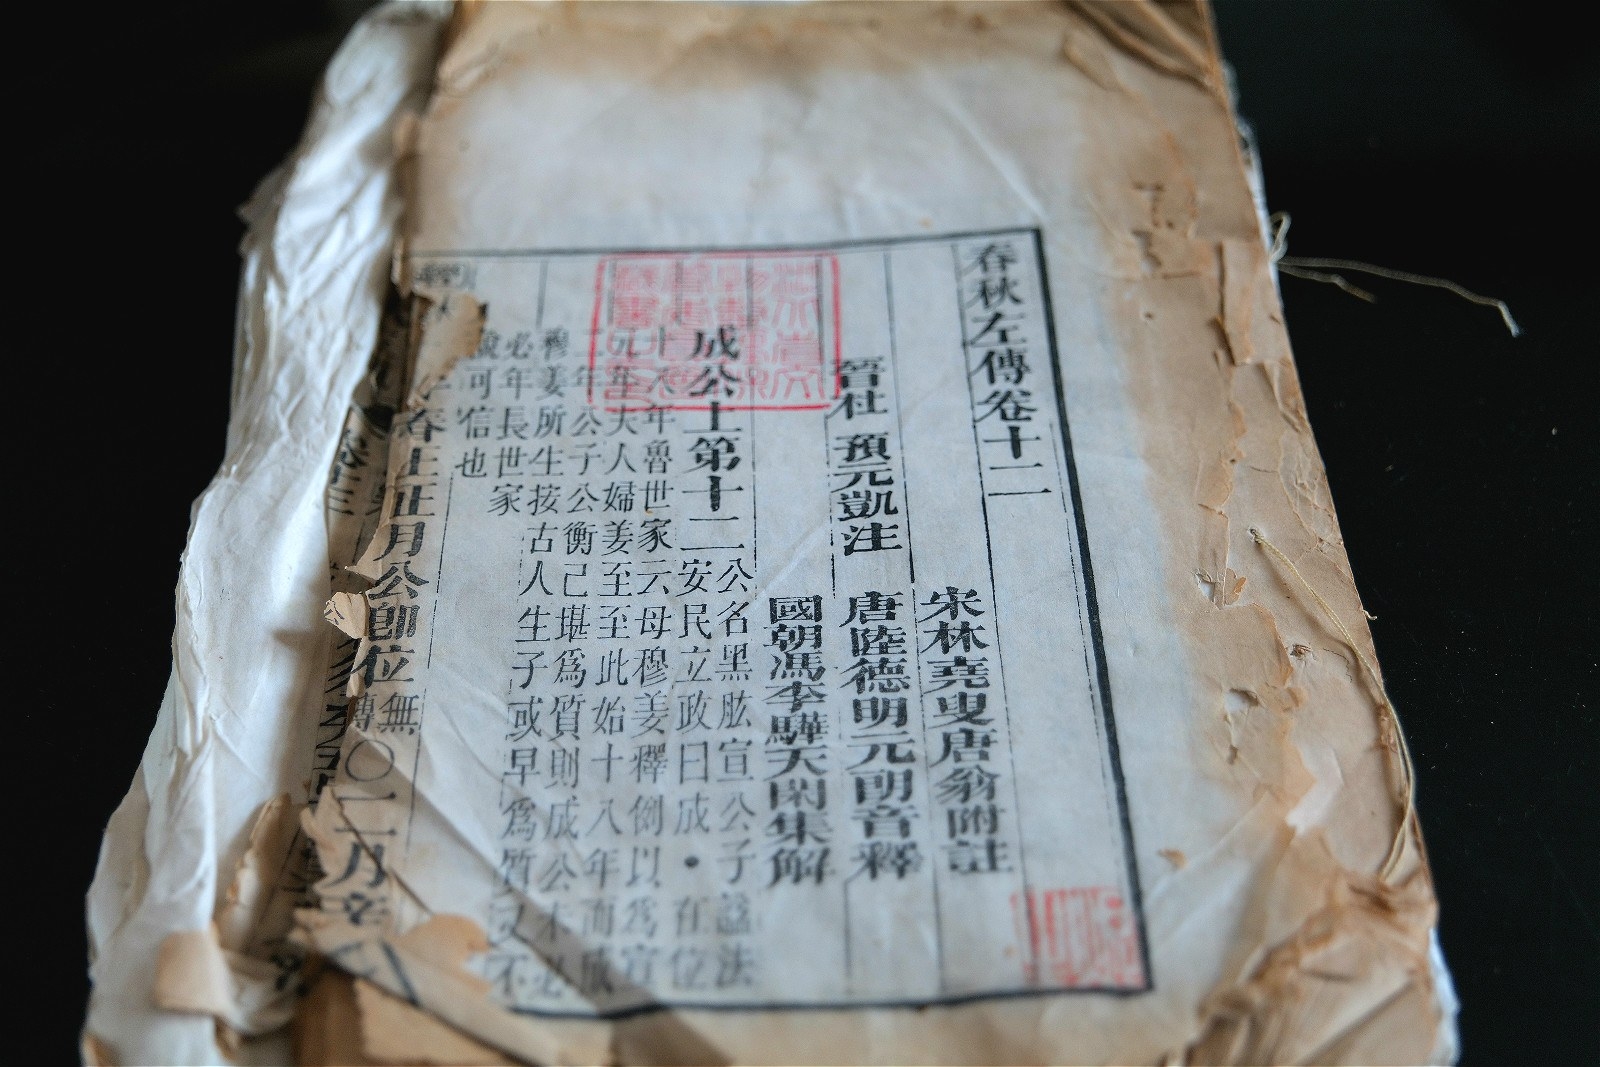 春秋左傳卷十二
宋林堯叟唐翁附註
晉杜 預元凱注 唐陸德明元朗音釋
國朝馮李驊天閑集解
成公上第十二
公名黑肱宣公子諡法
安民立政曰成•在位
十八年魯世家云母穆姜釋例以為宣
元年夫人婦姜至至此始十八年而成
二年公子公衡已堪爲質則成公未必
穆姜所生按古人生子或早爲質又不
必年長世家
說可信也
春王正月公卽位
無
傳
〇二月辛